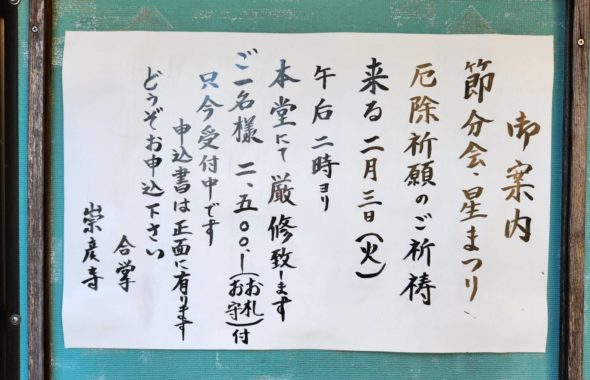 御案内
節分会・星まつり
厄除祈願のご祈祷
来る二月三日(火)
午后二時ヨリ
本堂にて厳修致します
ご一名様 二、五〇〇、ー(お札お守)付
只今受付中です
申込書は正面に有ります
どうぞお申込下さい
合掌
崇彦寺